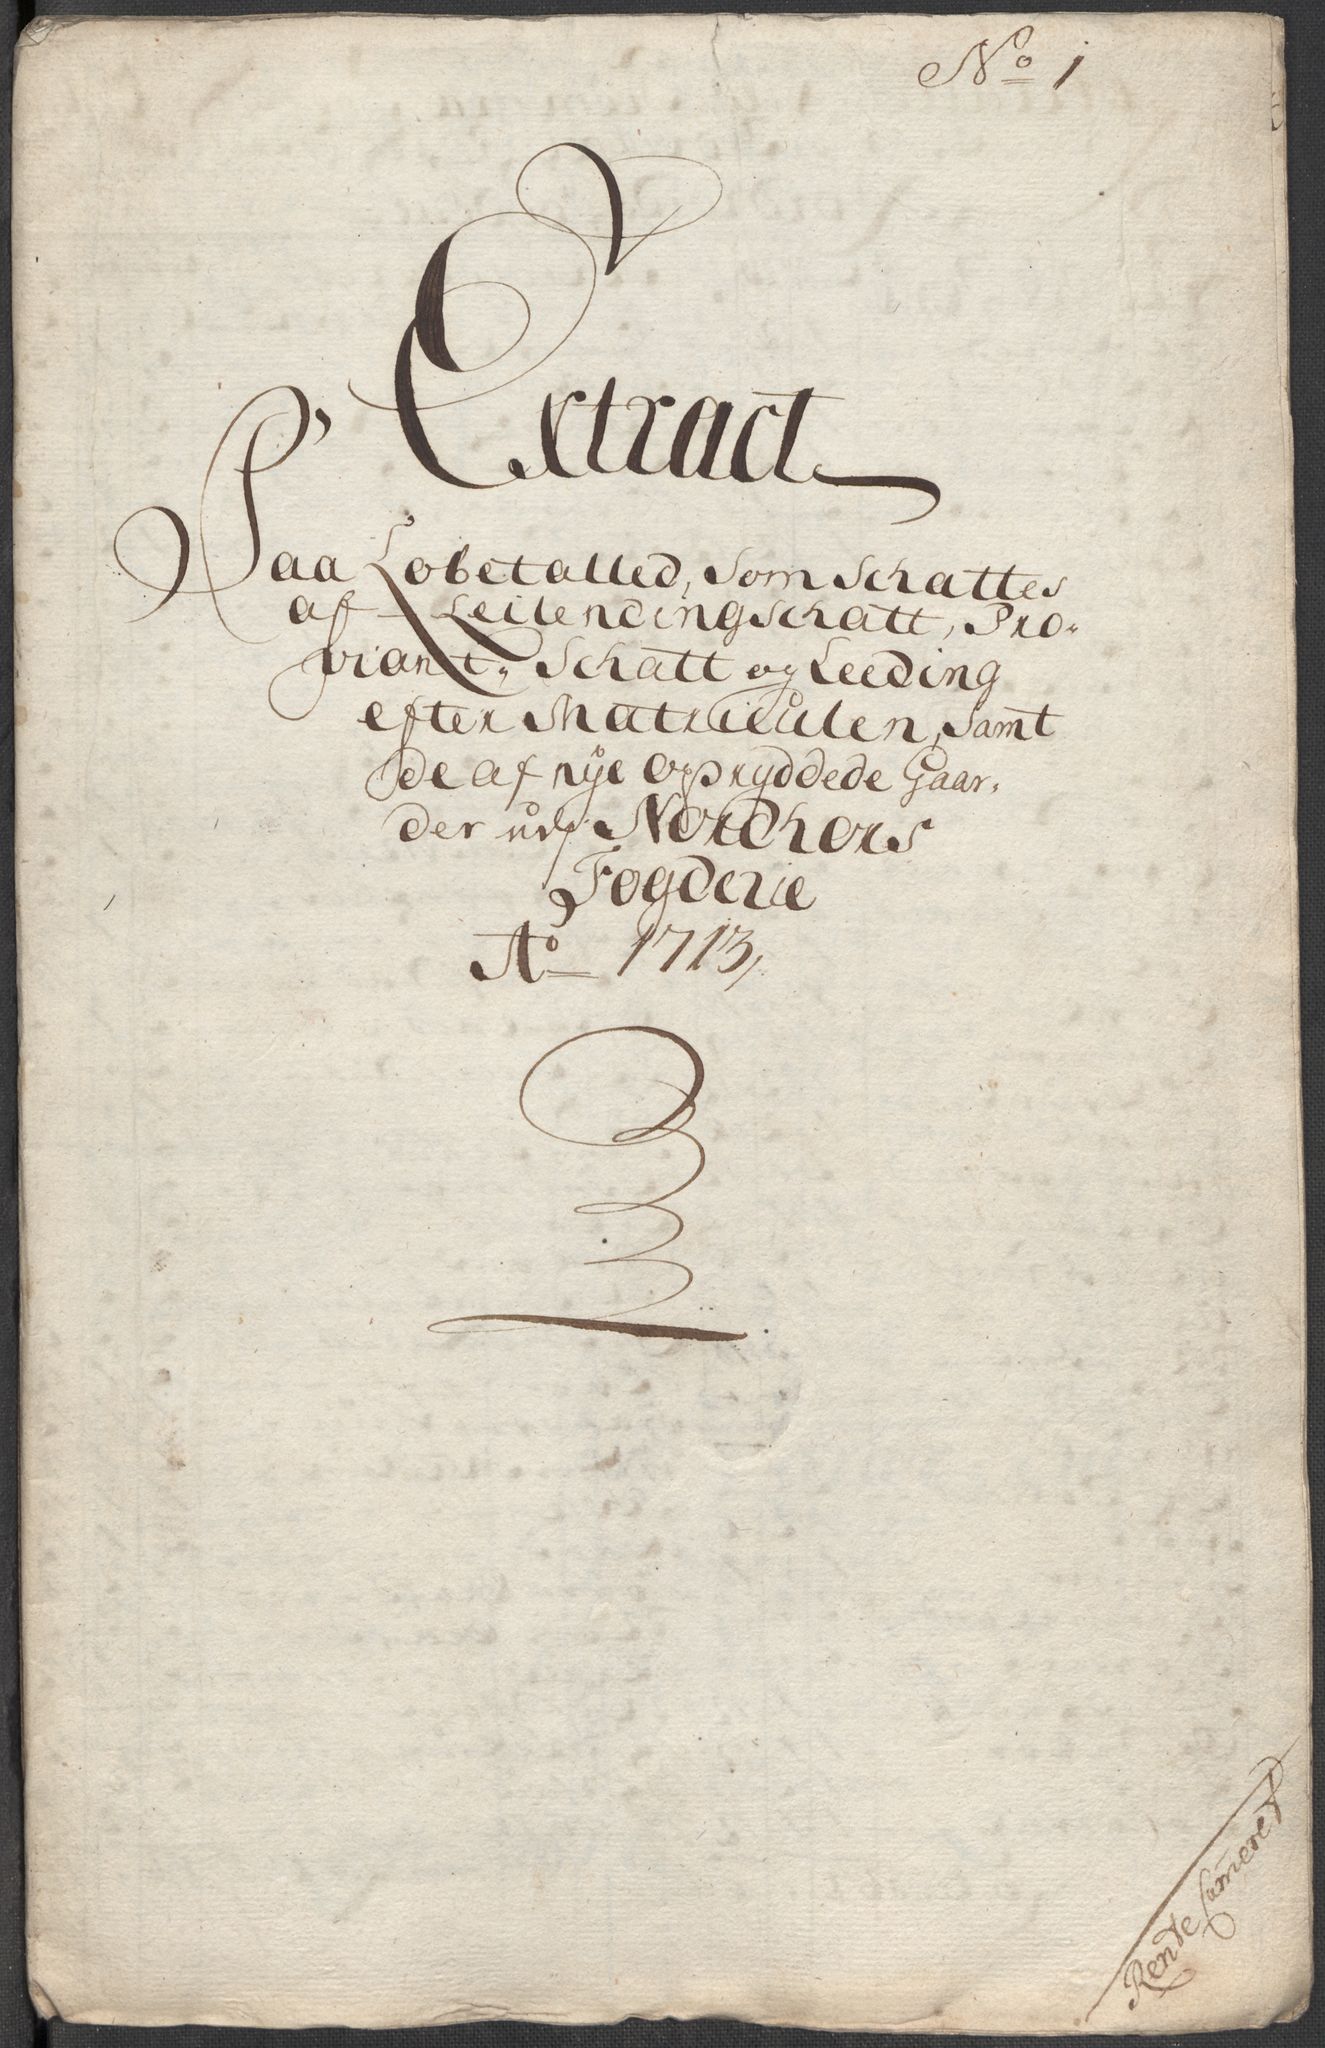 No 1
Extract
Paa Løbetalled, som schattes
af Leilendingschatt, Pro-
viant-Schatt og Leeding
efter Matriculen, samt
de af nÿe opryddede Gaar-
der udj Nordhors
Fogderie
Ao 1713,
Rente Cameret